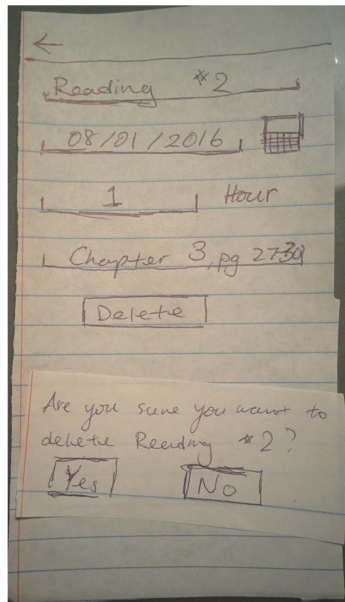 Reading #2
08/01/2016
1 Hour
Chapter 3, pg 27-30
Delete
Are you sure you want to
delete Reading #2?
Yes No